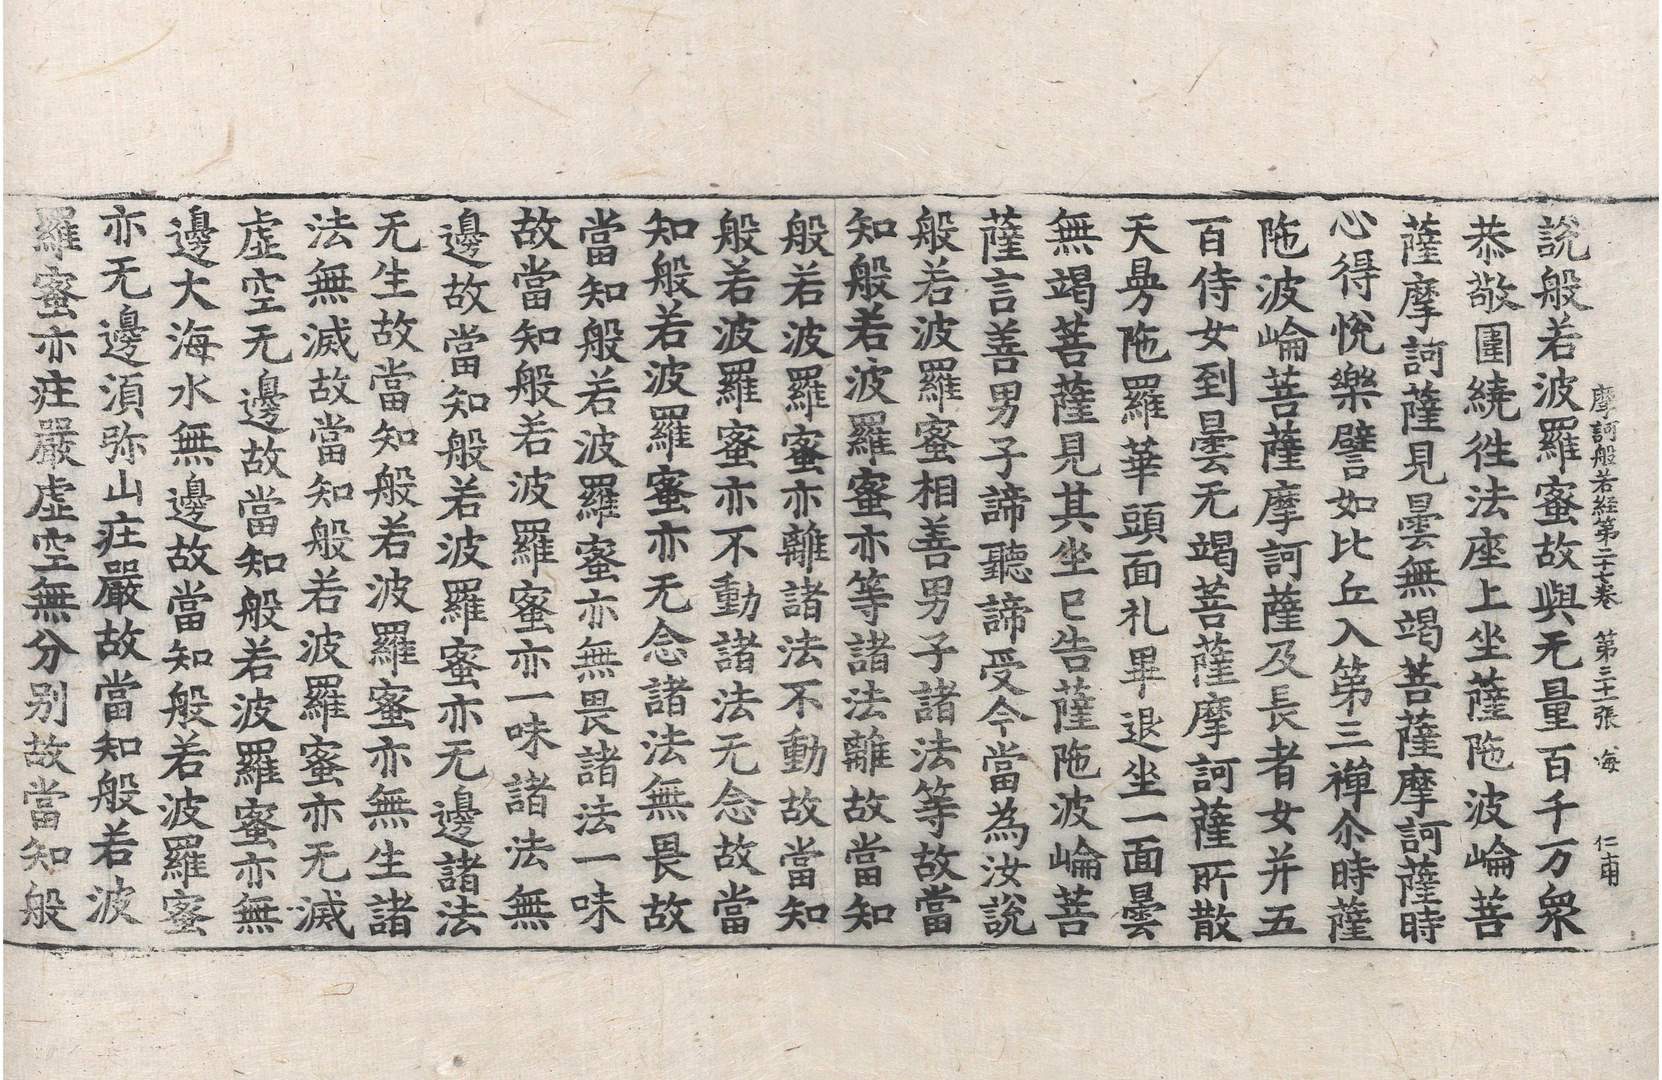 摩訶般若經第二十七卷　第三十一張　海　仁甫
說般若波羅蜜故與无量百千万衆
恭敬圍繞徃法座上坐薩陁波崘菩
薩摩訶薩見曇無竭菩薩摩訶薩時
心得悅樂譬如比丘入第三禪尒時薩
陁波崘菩薩摩訶薩及長者女并五
百侍女到曇无竭菩薩摩訶薩所散
天曼陁羅華頭面礼畢退坐一面曇
無竭菩薩見其坐已告薩陁波崘菩
薩言善男子諦聽諦受今當為汝說
般若波羅蜜相善男子諸法等故當
知般若波羅蜜亦等諸法離故當知
般若波羅蜜亦離諸法不動故當知
般若波羅蜜亦不動諸法无念故當
知般若波羅蜜亦无念諸法無畏故
當知般若波羅蜜亦無畏諸法一味
故當知般若波羅蜜亦一味諸法無
邊故當知般若波羅蜜亦无邊諸法
无生故當知般若波羅蜜亦無生諸
法無滅故當知般若波羅蜜亦无滅
虛空无邊故當知般若波羅蜜亦無
邊大海水無邊故當知般若波羅蜜
亦无邊湏弥山庄嚴故當知般若波
羅蜜亦庄嚴虛空無分別故當知般